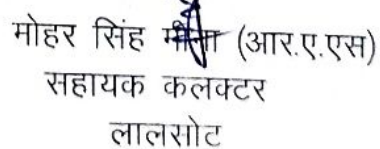 मोहर सिंह मीना (आर.ए.एस)
सहायक कलक्टर
लालसोट